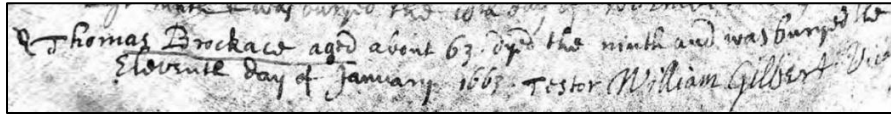 was buryed the day of
Thomas Brockace aged about 63. dyed the ninth and was buryed the
Eleventh day of January 1663. Testor William Gilbert Vic